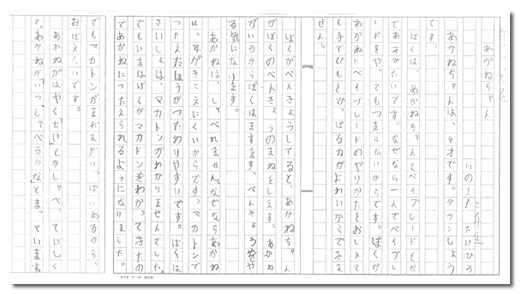 あかねちゃん
いのまた たけひろ
あかねちゃんは、4才です。ダウンしょう
です。
ぼくは、あかねちゃんとベイブレードとか
であそびたいです。なぜなら一人でベイブレ
ードをや、てもつまらないからです。ぼくが
あかねにベイブレードのやりかたをおしえて
も手でひもをひ、ぱる力がよわいからできま
せん。
ぼくがべんきょうしてると、あかねちゃん
がぼくのべんきょうのまねをします。あかね
がいるからぼくはますます、べんきょうを
る気になります。
あかねは、しゃべれません。なぜならあかね
は、耳がきこえにくいからです。マカトンで
つたえたほうがつたわりやすいです。ぼくは
さいしょは、マカトンがわかりませんでした。
でもいまはぼくがマカトンをわかってきたの
であかねにつたえられるようになりました。
でもマカトンがまだまだい、ぱいあるから、
おぼえたいです。
あかねがはやくただしくしゃべ、てほしく
と、あかねがいつ、しゃべるかなとま、ています。